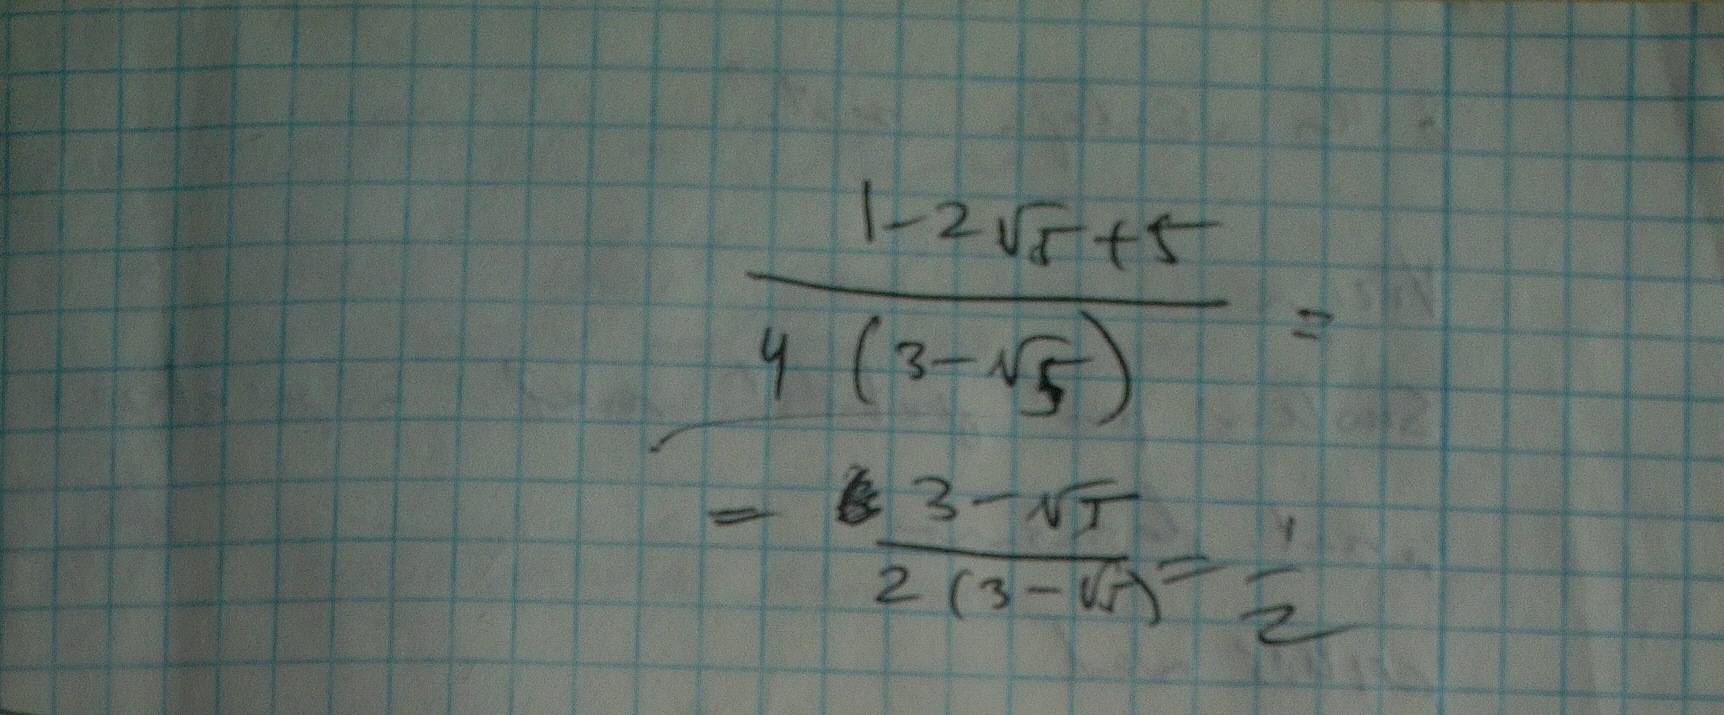 1-2√5+5
4 (3-√5) =
= 3-√5
2 (3-√5) = 1/2